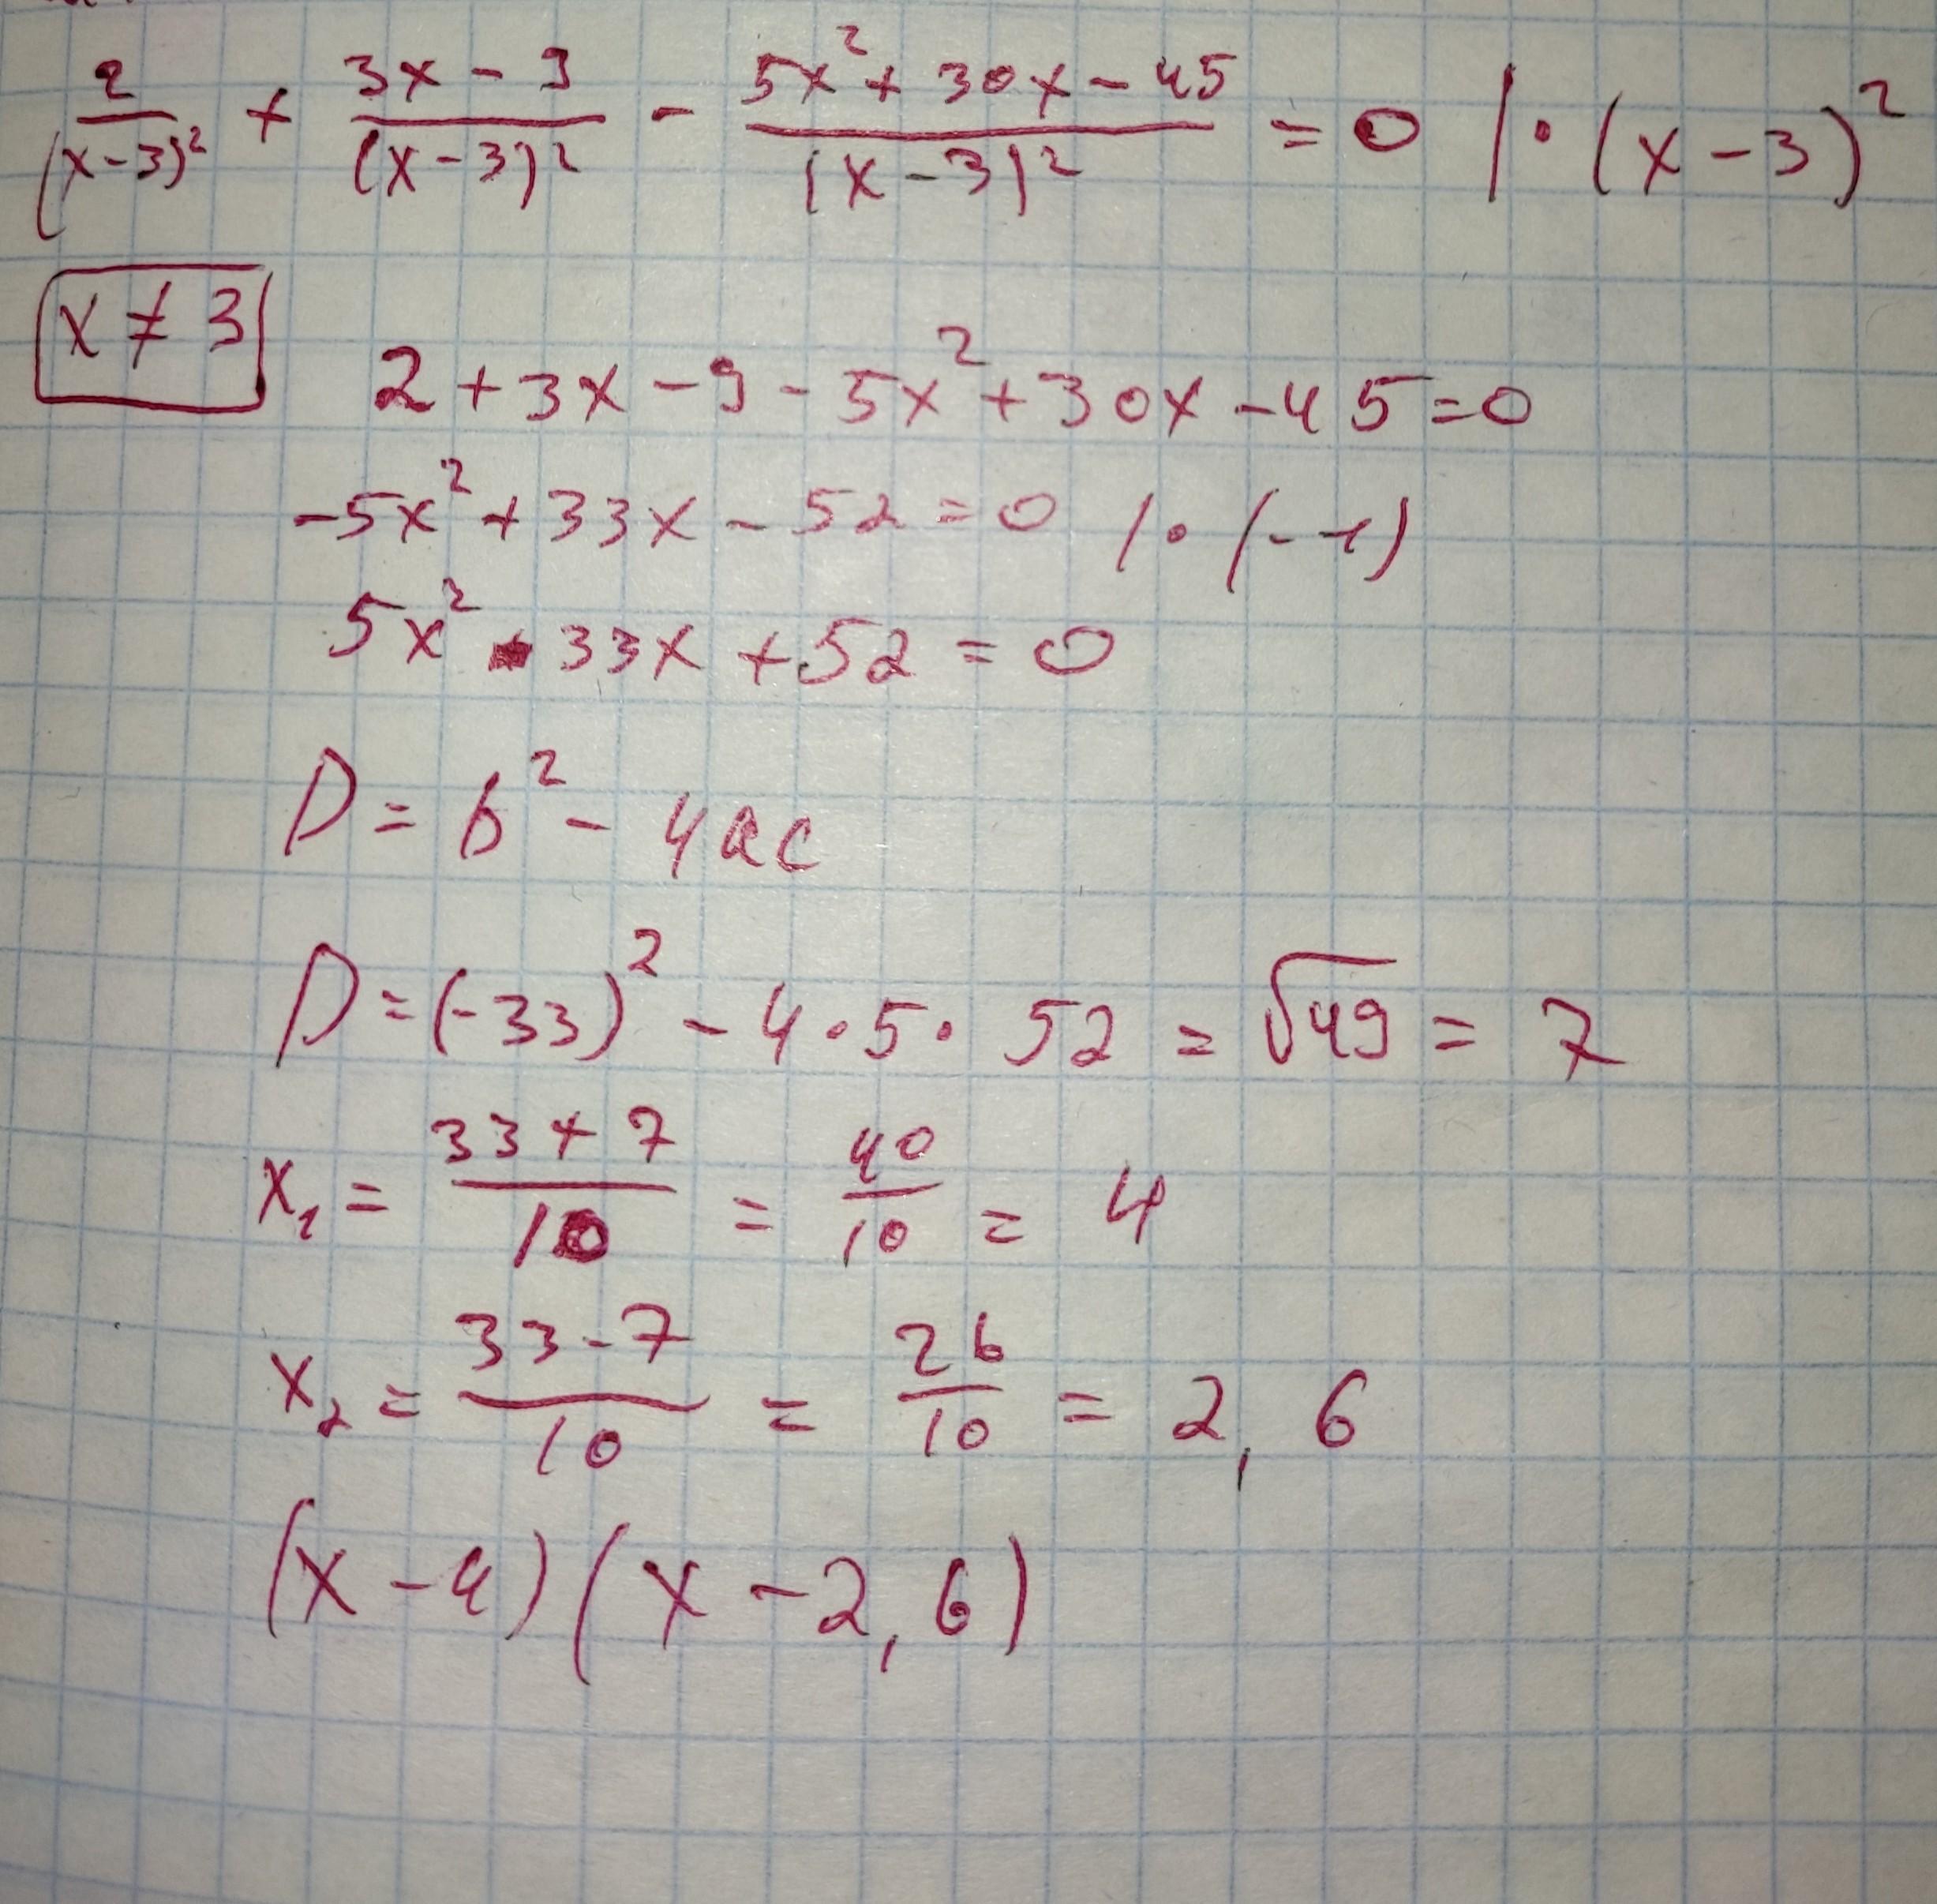 2/(x-3)² + (3x - 9)/(x-3)² - (5x² + 30x - 45)/(x-3)² = 0 | · (x-3)²
x ≠ 3
2 + 3x - 9 - 5x² + 30x - 45 = 0
-5x² + 33x - 52 = 0 | · (-1)
5x² - 33x + 52 = 0
D = b² - 4ac
D = (-33)² - 4 · 5 · 52 = √49 = 7
x₁ = (33 + 7)/10 = 40/10 = 4
x₂ = (33 - 7)/10 = 26/10 = 2,6
(x - 4)(x - 2,6)